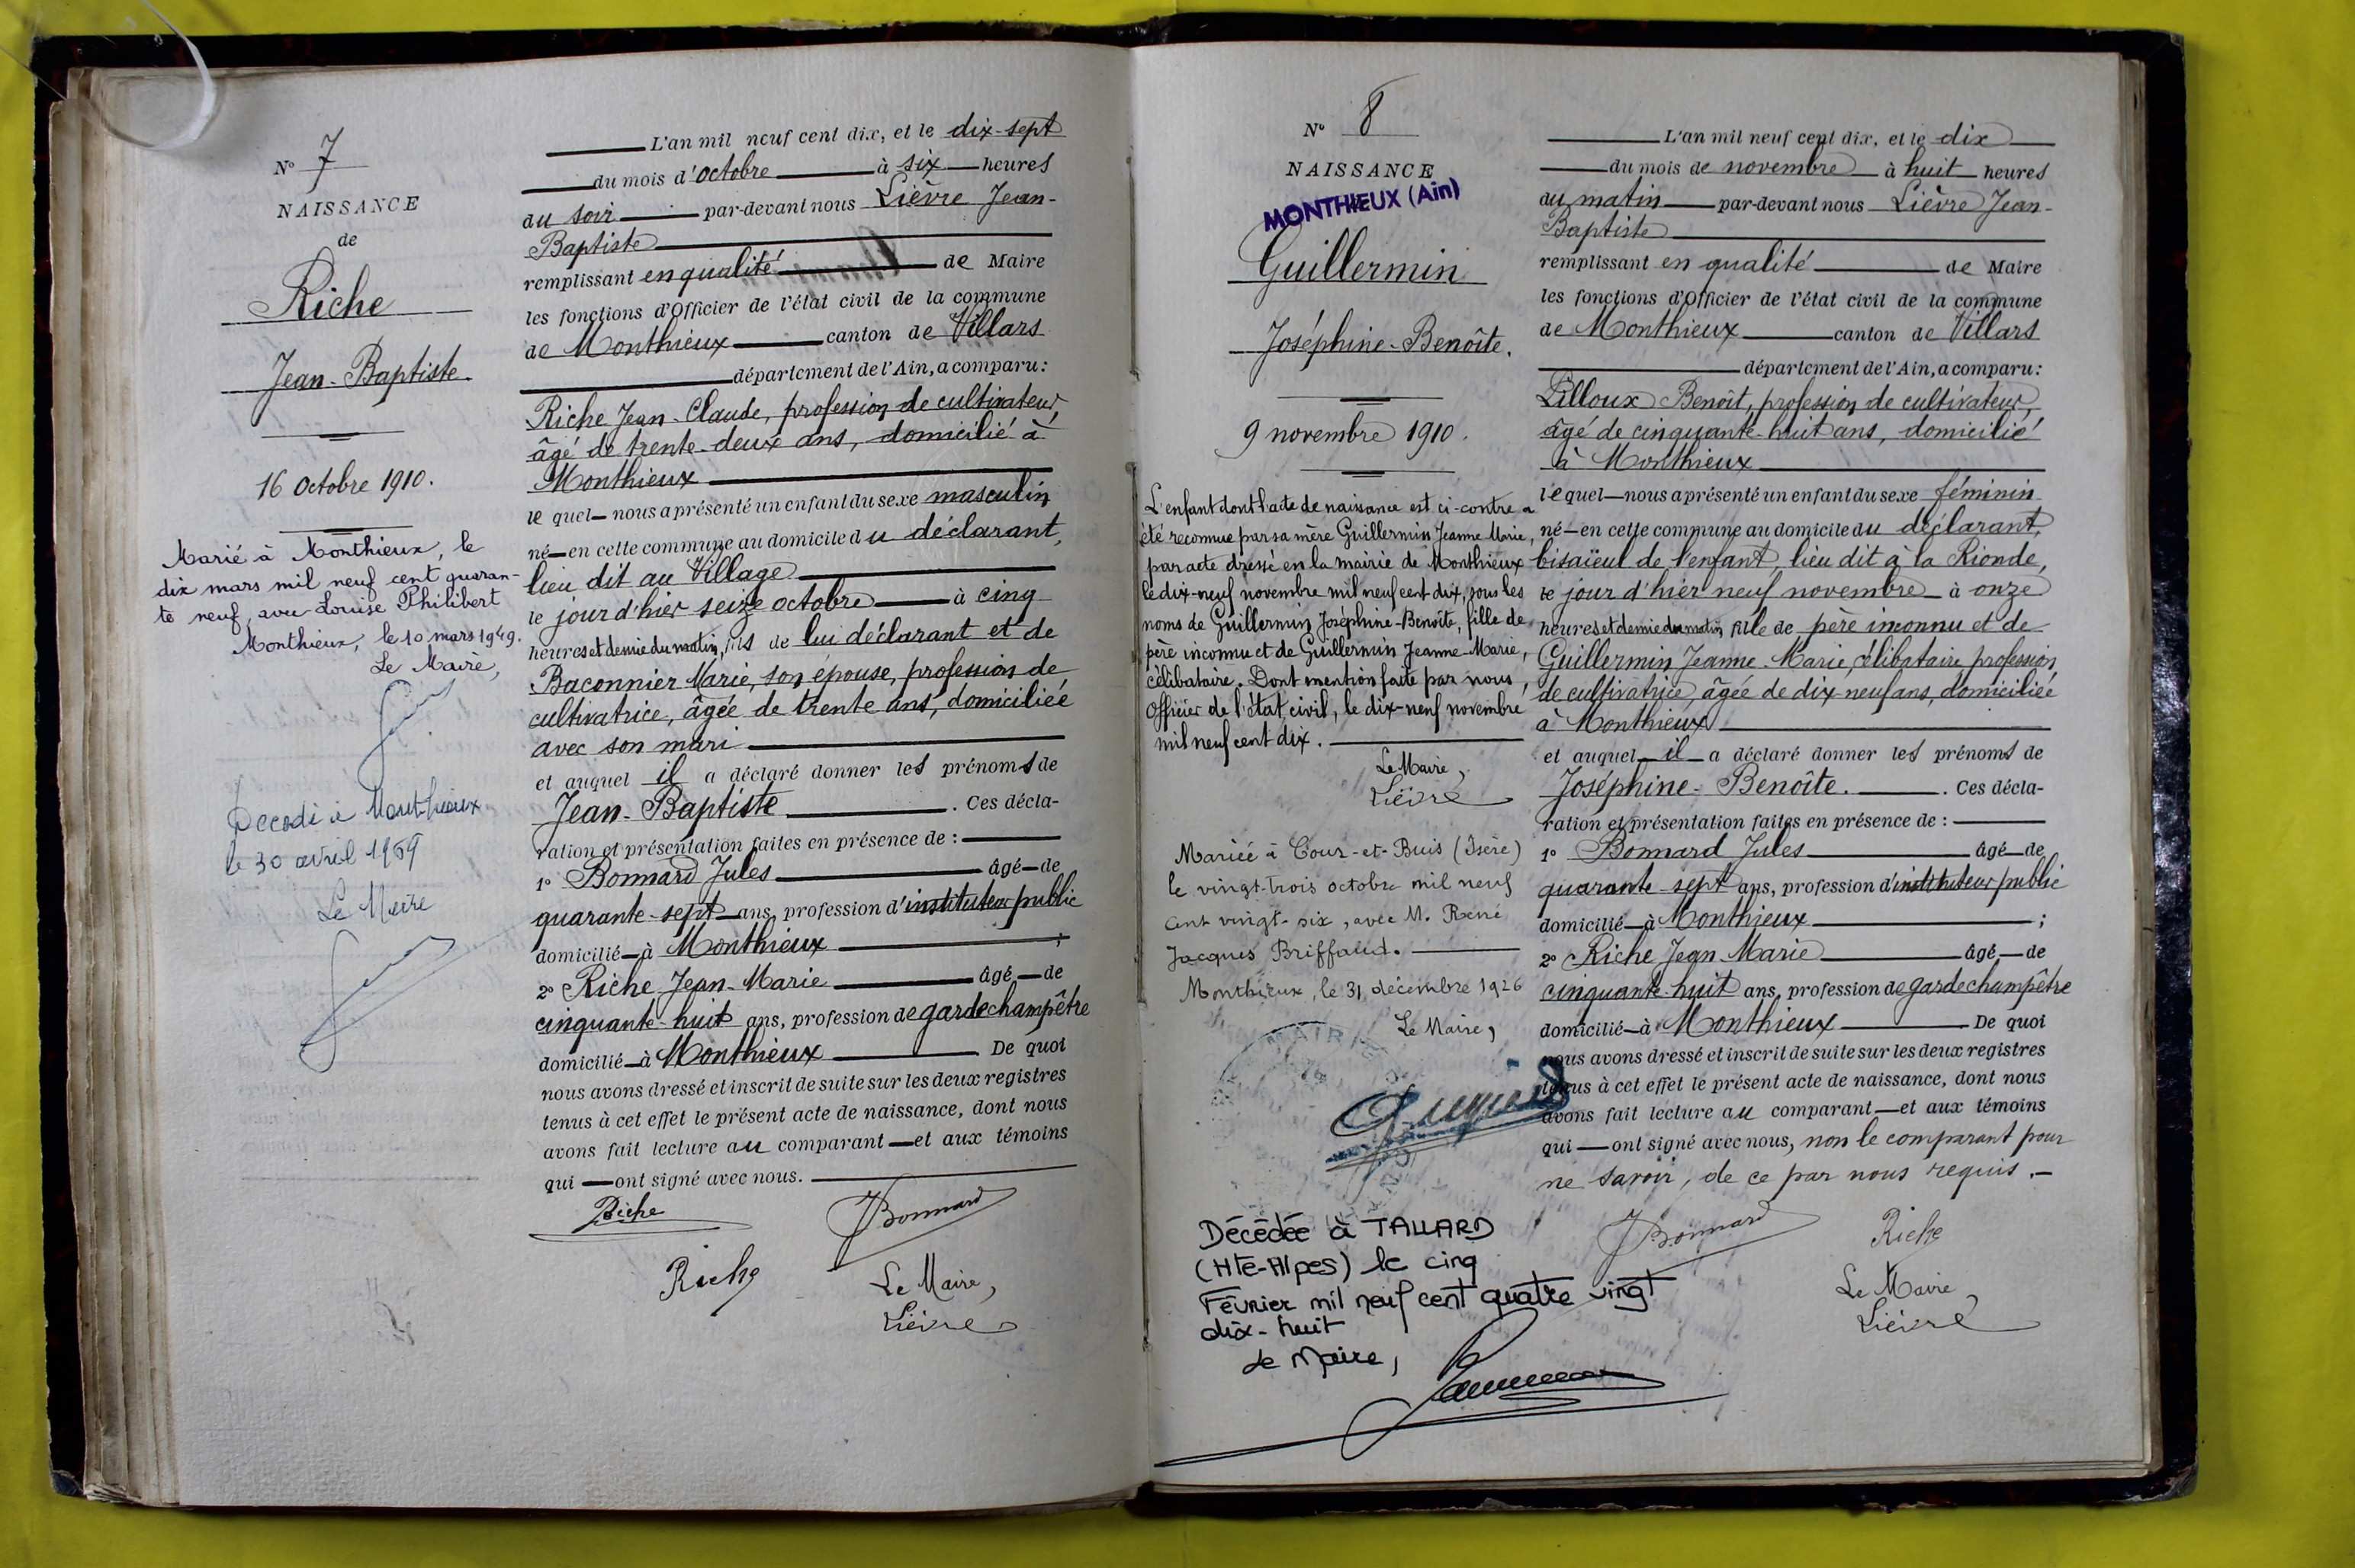 N° 7
NAISSANCE
de
Riche
Jean-Baptiste.
16 Octobre 1910.
Marié à Monthieux, le
dix mars mil neuf cent quaran-
te neuf, avec Louise Philibert
Monthieux, le 10 mars 1949.
Le Maire,
Decedé à Monthieux
le 30 avril 1969
Le Maire
L'an mil neuf cent dix, et le dix-sept
du mois d'octobre à six heures
du soir par-devant nous Lièvre Jean-
Baptiste
remplissant en qualité de Maire
les fonctions d'Officier de l'état civil de la commune
de Monthieux canton de Villars
département de l'Ain, a comparu :
Riche Jean-Claude, profession de cultivateur,
âgé de trente-deux ans, domicilié à
Monthieux
le quel nous a présenté un enfant du sexe masculin
né en cette commune au domicile du déclarant,
lieu dit au Village
le jour d'hier seize octobre à cinq
heures et demie du matin, fils de lui déclarant et de
Baconnier Marie, son épouse, profession de
cultivatrice, âgée de trente ans, domiciliée
avec son mari
et auquel il a déclaré donner les prénoms de
Jean-Baptiste . Ces décla-
ration et présentation faites en présence de :
1° Bonnard Jules âgé de
quarante-sept ans, profession d'instituteur public
domicilié à Monthieux ;
2° Riche Jean-Marie âgé de
cinquante-huit ans, profession de garde champêtre
domicilié à Monthieux De quoi
nous avons dressé et inscrit de suite sur les deux registres
tenus à cet effet le présent acte de naissance, dont nous
avons fait lecture au comparant et aux témoins
qui ont signé avec nous.
Riche JBonnard
Riche Le Maire,
Lièvre
N° 8
NAISSANCE
MONTHIEUX (Ain)
Guillermin
Joséphine-Benoîte.
9 novembre 1910.
L'enfant dont l'acte de naissance est ci-contre a
été reconnue par sa mère Guillermin Jeanne Marie,
par acte dressé en la mairie de Monthieux
le dix-neuf novembre mil neuf cent dix, sous les
noms de Guillermin Joséphine-Benoîte, fille de
père inconnu et de Guillermin Jeanne-Marie,
célibataire. Dont mention faite par nous,
Officier de l'état civil, le dix-neuf novembre
mil neuf cent dix.
Le Maire,
Lièvre
Mariée à Cour-et-Buis (Isère)
le vingt-trois octobre mil neuf
cent vingt-six, avec M. René
Jacques Briffaud.
Monthieux, le 31 décembre 1926
Le Maire,
MAIRIE
Décédée à TALLARD
(Hte-Alpes) le cinq
Février mil neuf cent quatre vingt
dix-huit
Le Maire,
L'an mil neuf cent dix, et le dix
du mois de novembre à huit heures
du matin par-devant nous Lièvre Jean-
Baptiste
remplissant en qualité de Maire
les fonctions d'Officier de l'état civil de la commune
de Monthieux canton de Villars
département de l'Ain, a comparu :
Lilloux Benoît, profession de cultivateur,
âgé de cinquante-huit ans, domicilié
à Monthieux
le quel nous a présenté un enfant du sexe féminin
né en cette commune au domicile du déclarant,
bisaïeul de l'enfant, lieu dit à la Rionde,
le jour d'hier neuf novembre à onze
heures et demie du matin, fille de père inconnu et de
Guillermin Jeanne-Marie, célibataire, profession
de cultivatrice, âgée de dix-neuf ans, domiciliée
à Monthieux
et auquel il a déclaré donner les prénoms de
Joséphine-Benoîte. . Ces décla-
ration et présentation faites en présence de :
1° Bonnard Jules âgé de
quarante-sept ans, profession d'instituteur public
domicilié à Monthieux ;
2° Riche Jean Marie âgé de
cinquante-huit ans, profession de garde champêtre
domicilié à Monthieux De quoi
nous avons dressé et inscrit de suite sur les deux registres
tenus à cet effet le présent acte de naissance, dont nous
avons fait lecture au comparant et aux témoins
qui ont signé avec nous, non le comparant pour
ne savoir, de ce par nous requis.
JBonnard Riche
Le Maire,
Lièvre